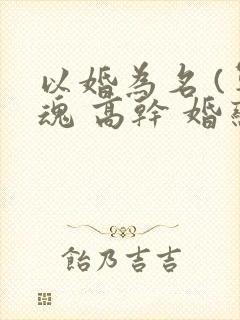 以婚為名(
魂 高幹 婚
飴乃吉吉